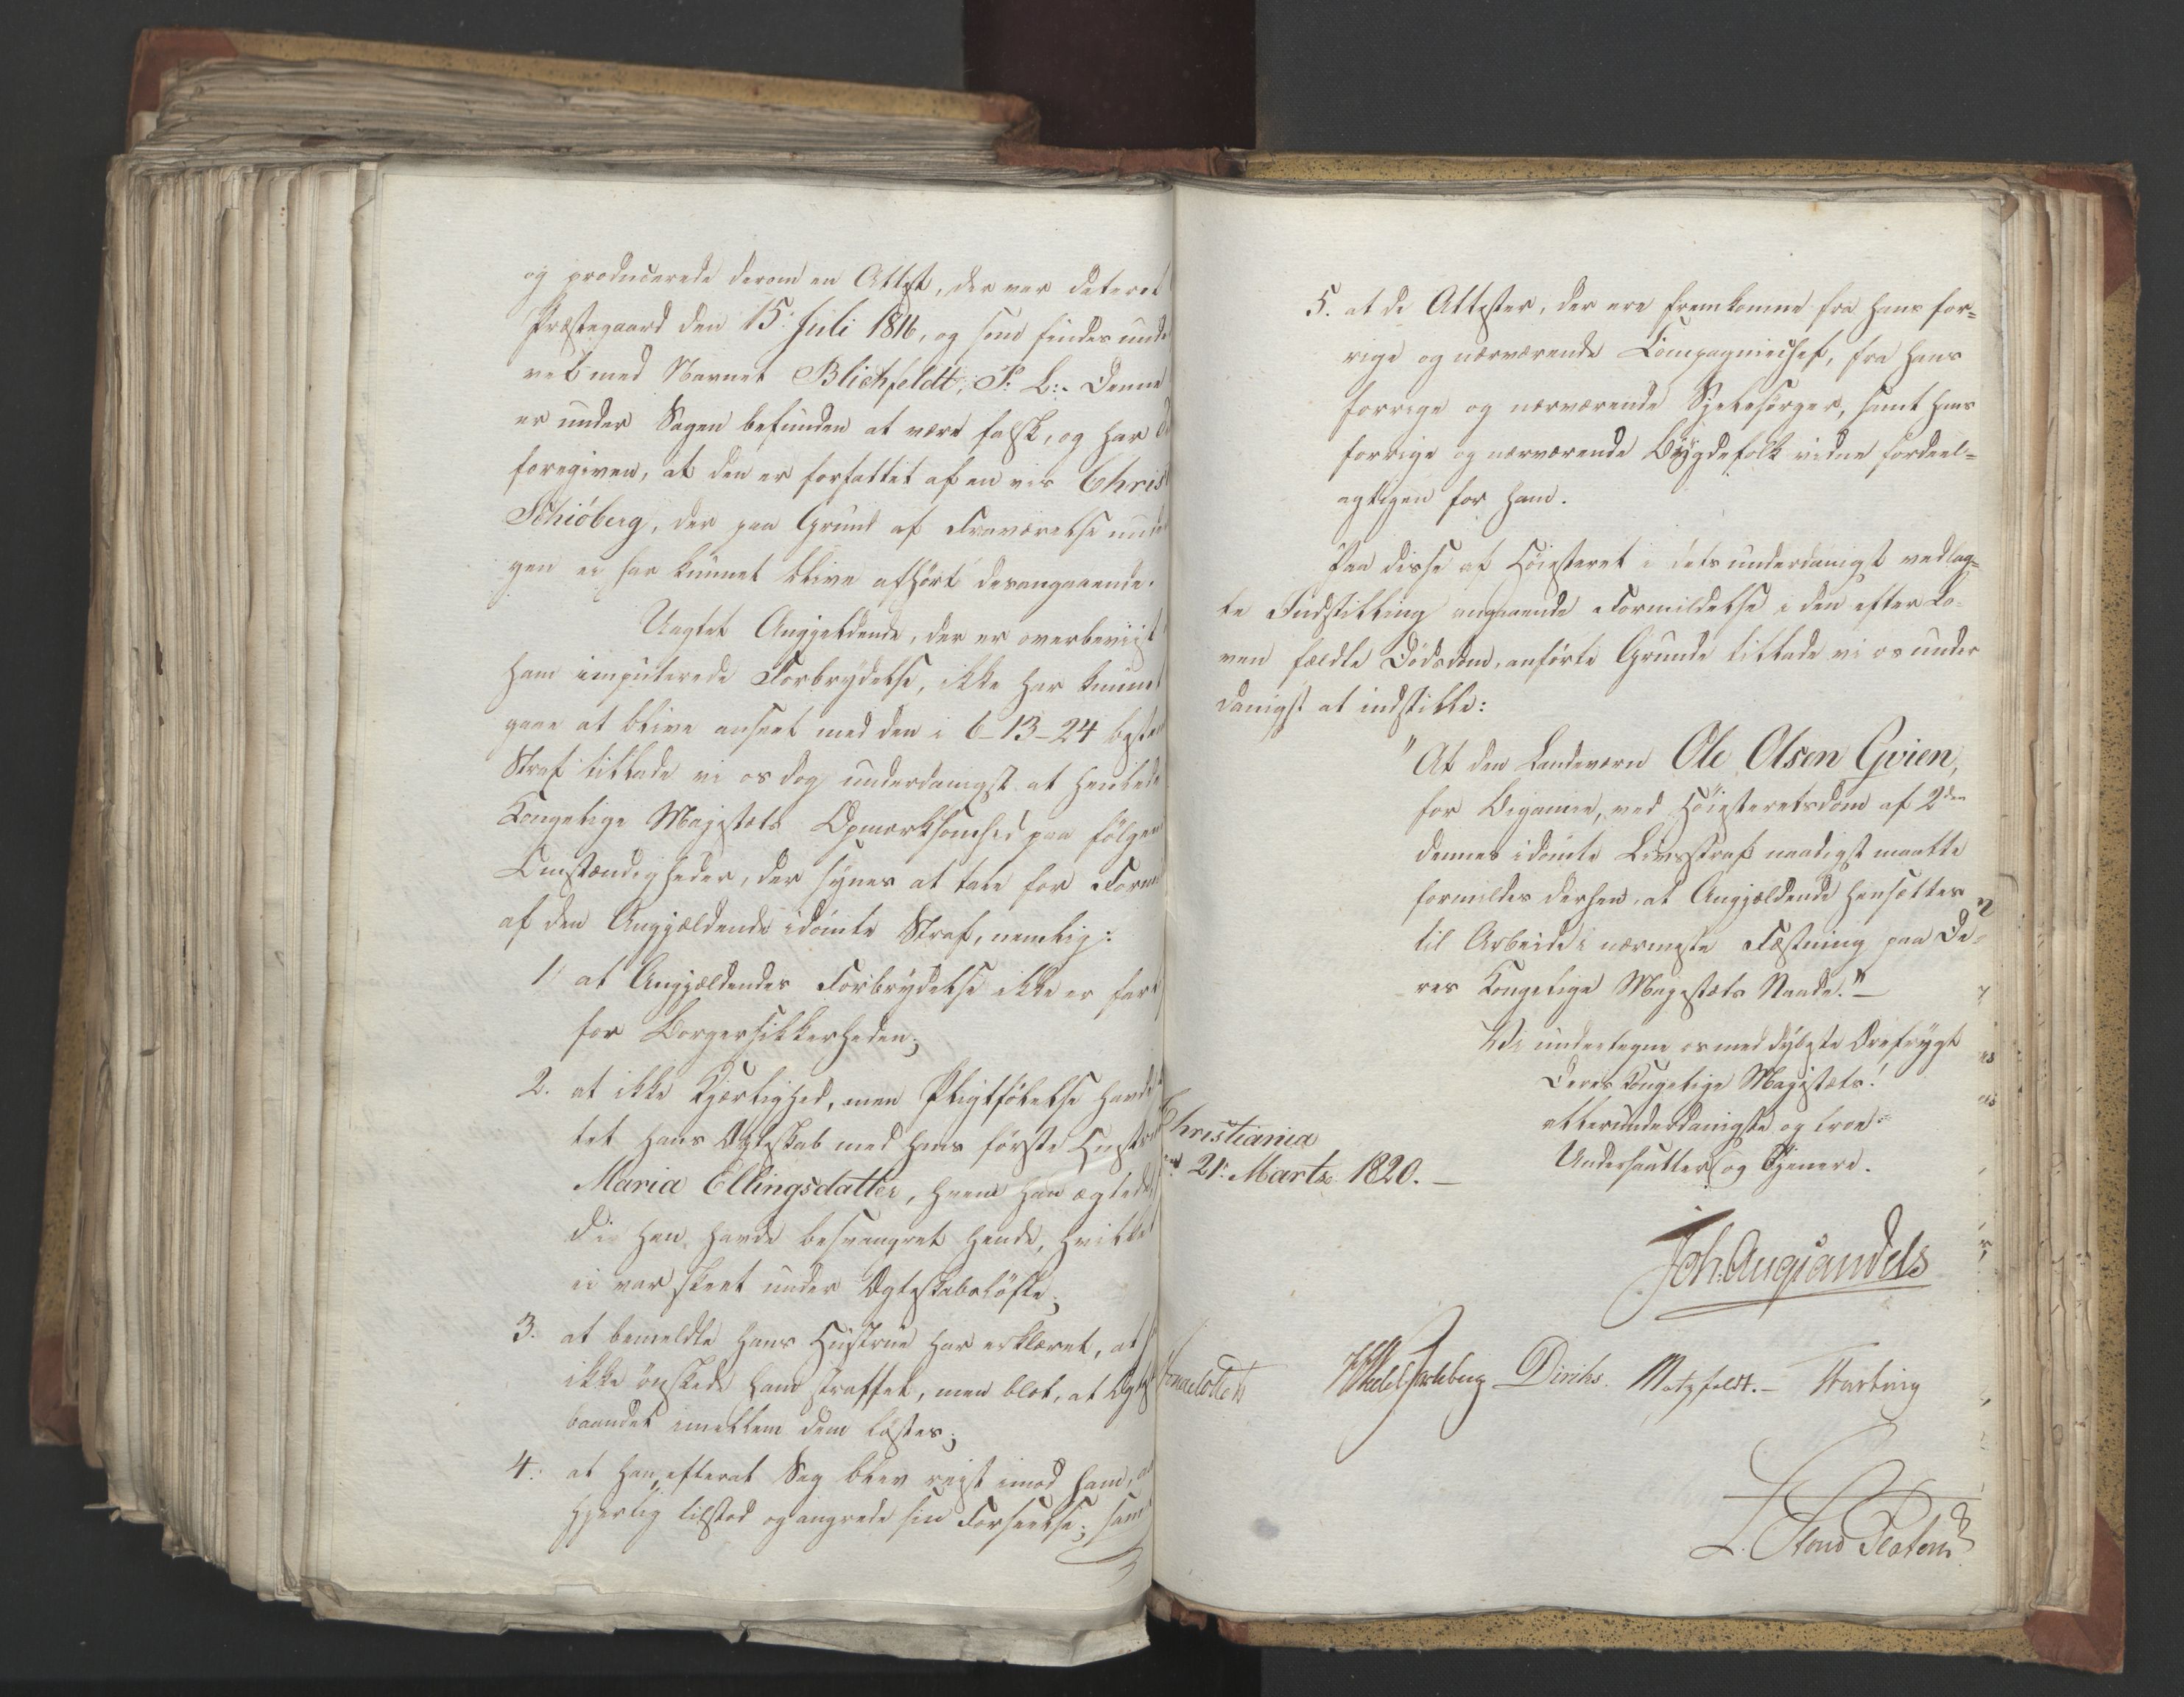 og producerede derom en Attest, der var dateret
Præstegaard den 15. Juli 1816, og som findes unde
vet med Navnet Blichfeldt, P: L:. Denne
er under Sagen befunden at være falsk, og har
foregiven, at den er forfattet af en vis Chris
Schiöberg, der paa Grund af Fraværelse unde
gen ei har kunnet blive afhørt desangaaende.
Uagtet Angjeldende, der er overbeviist
ham imputerede Forbrydelse, ikke har kunnet
gaae at blive anseet med den i 6-13-24 beste
Straf tillade vi os dog underdanigst at henlede
Kongelige Majestæts Opmærksomhed paa følgen
Omstændigheder, der synes at tale for Formil
af den Angjældende idømte Straf, nemlig:
1. at Angjældendes Forbrydelse ikke er farl
for Borgersikkerheden;
2. at ikke Kjærlighed, men Pligtfølelse havde
tet hans Ægteskab med hans første Hustru
Maria Ellingsdatter, hvem han ægtede
di han havde besvangret hende, hvilket
ei var skeet under Ægteskabsløfte;
3. at bemeldte hans Hustrue har erklæret, at
ikke ønskede ham straffet, men blot, at Ægtes
baandet imellem dem løstes;
4. at han, efterat Sag blev reist imod ham,
hjertlig tilstod og angrede sin Forseelse; samt
5. at de Attester, der ere fremkomne fra hans for=
rige og nærværende Compagniechef, fra hans
forrige og nærværende Sjelesørger, samt hans
forrige og nærværende Bÿgdefolk vidne fordeel=
agtigen for ham.
Paa disse af Høiesteret i dets underdanigst vedlag=
te Indstilling angaaende Formildelse i den efter Lo=
ven fældte Dødsdom, anførte Grunde tillade vi os under
danigst at indstille:
"At den Landeværn Ole Olsen Gvien,
for Bigamie, ved Høiesteretsdom af 2den
dennes idømte Livsstraf naadigst maatte
formildes derhen, at Angjældende hensættes
til Arbeide i nærmeste Fæstning paa De=
res Kongelige Majestæts Naade."
Vi undertegne os med dybeste Ærefrygt
Deres Kongelige Majestæts!
allerunderdanigste og troe=
Undersaatter og Tjenere.
Christiania
21. Marts 1820.
Joh. Aug Sandels
HWedel Jarlsberg Diriks. Motzfeldt.